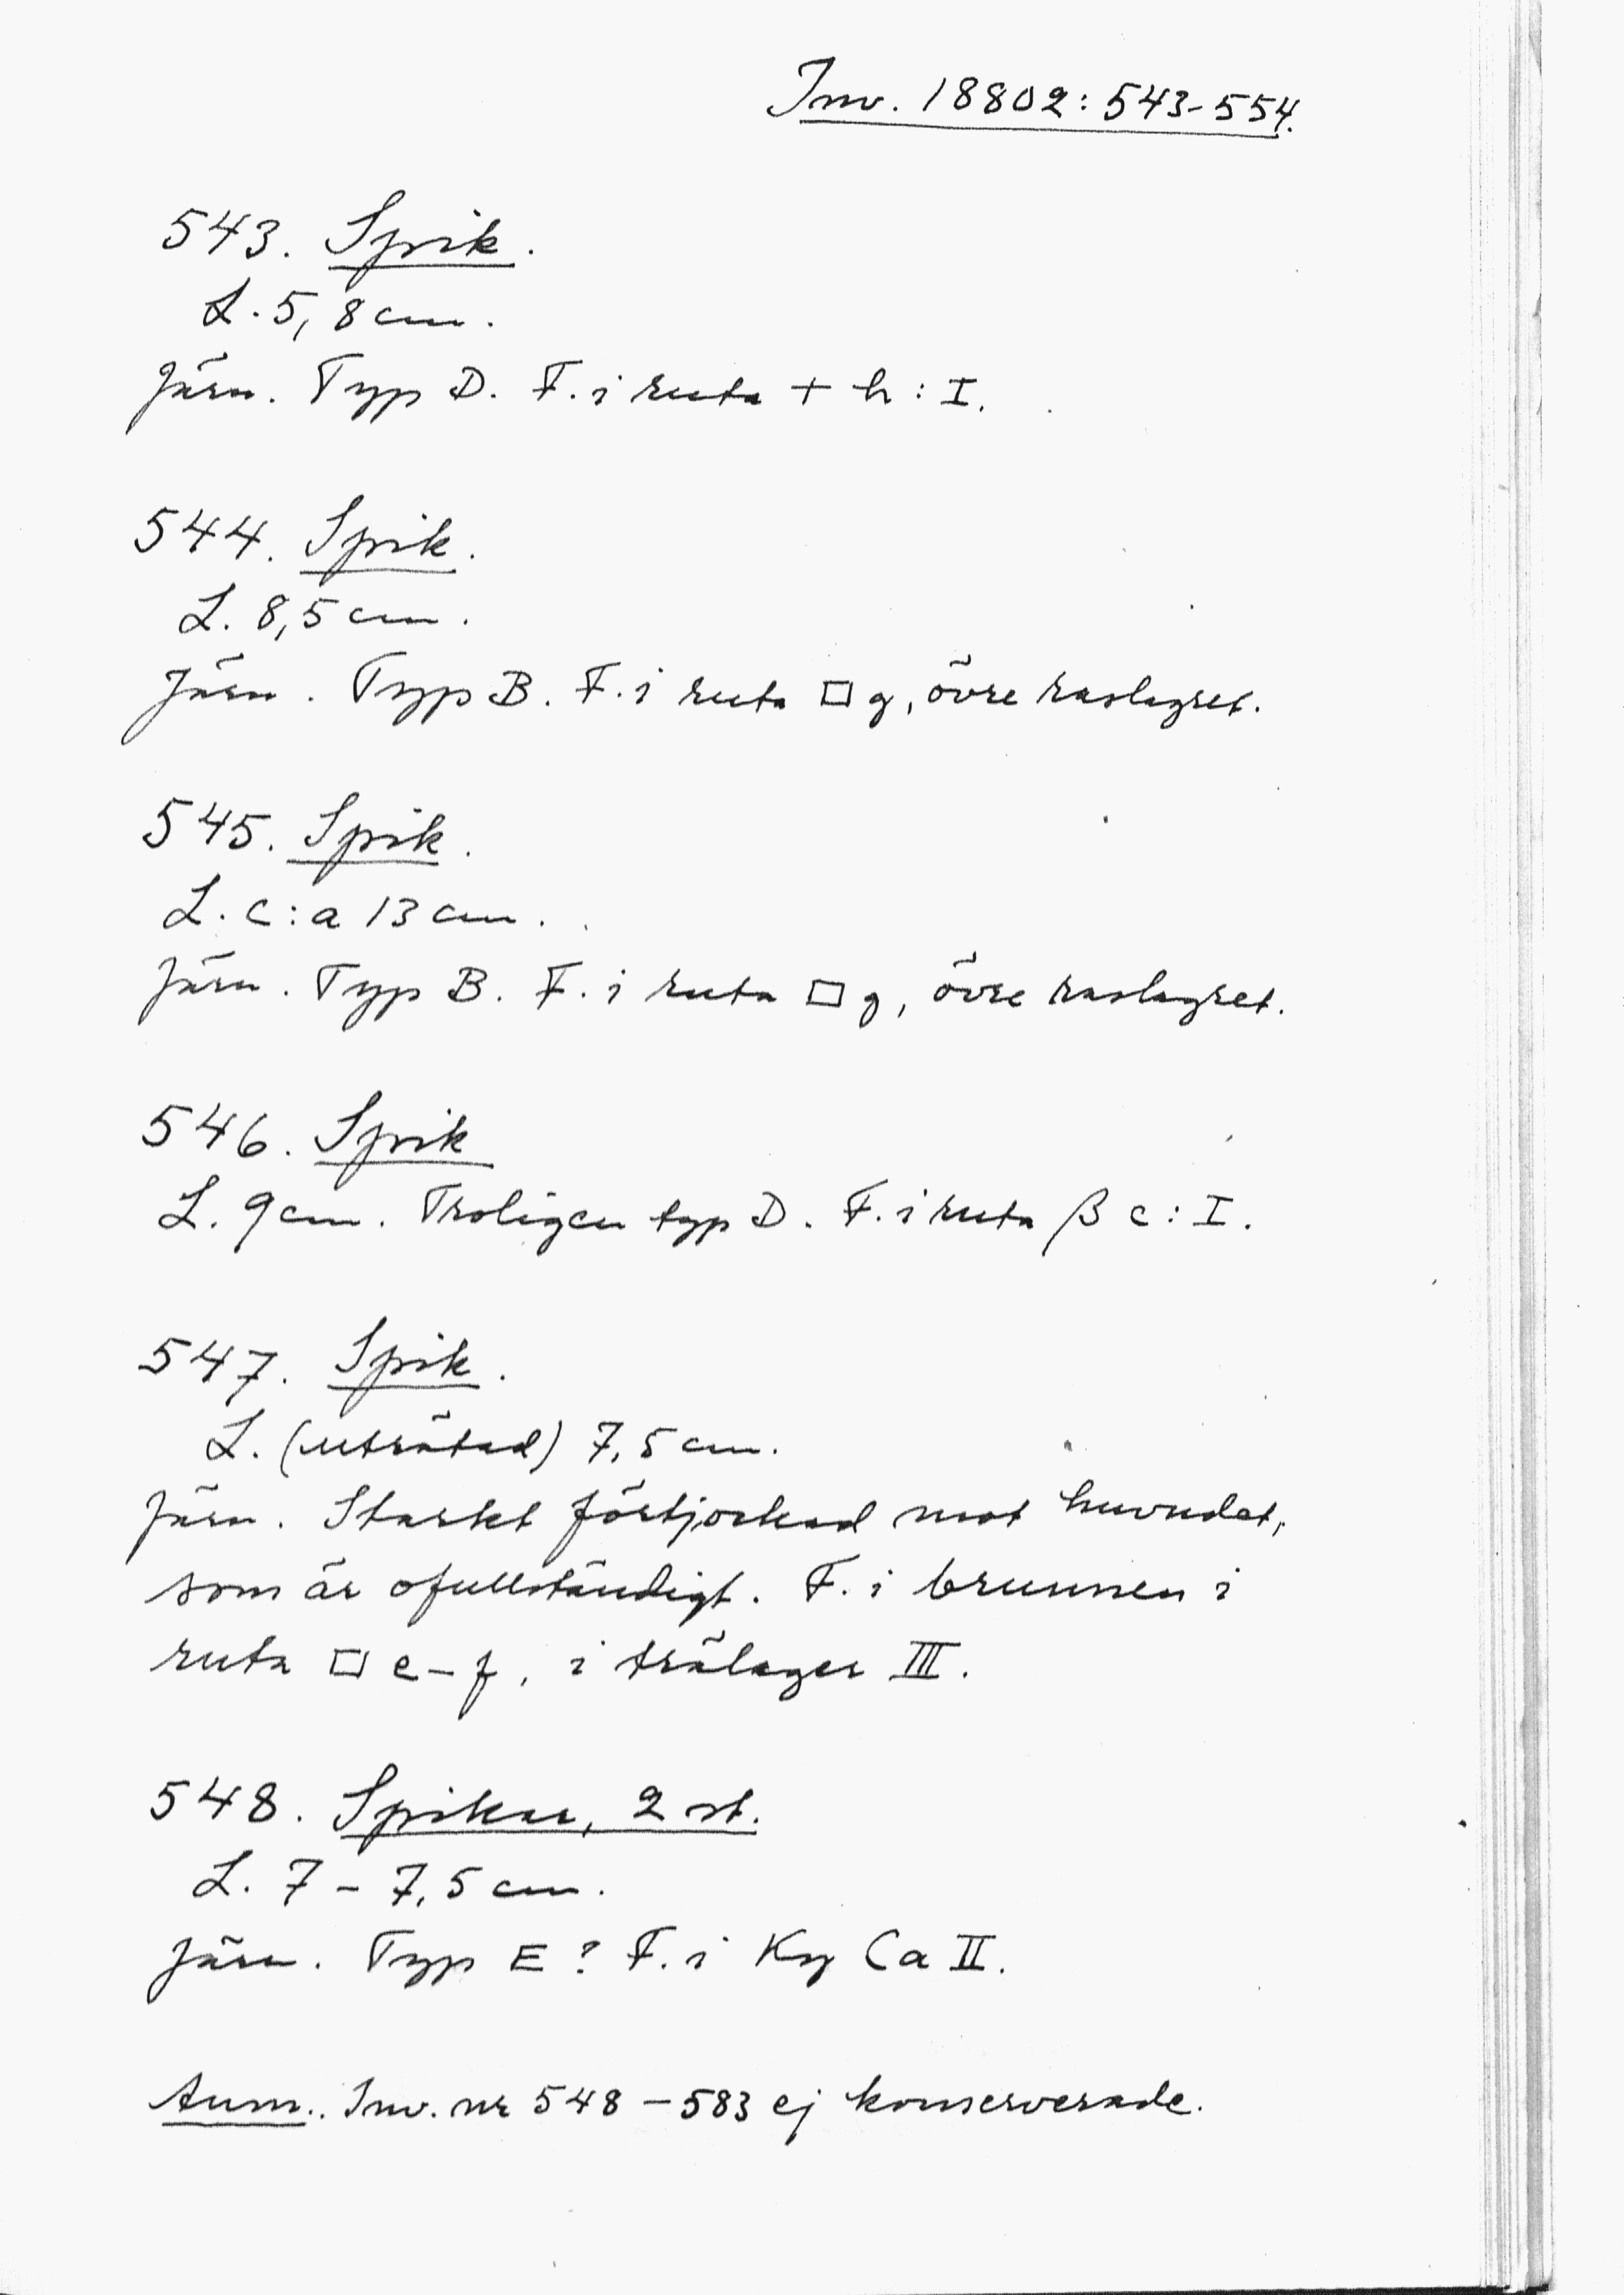 Inv. 18802: 543-554.
543. Spik.
L. 5,8 cm.
Järn. Typ D. F. i ruta + h : I.
544. Spik.
L. 8,5 cm.
Järn. Typ B. F. i ruta □ g, övre raslagret.
545. Spik.
L. c:a 13 cm.
Järn. Typ B. F. i ruta □ g, övre raslagret.
546. Spik
L. 9 cm. Troligen typ D. F. i ruta β c : I.
547. Spik.
L. (uträtad) 7,5 cm.
Järn. Starkt förtjockad mot huvudet,
som är ofullständigt. F. i brunnen i
ruta □ e-f, i trälager III.
548. Spikar, 2 st.
L. 7 - 7,5 cm.
Järn. Typ E? F. i Ky Ca II.
Anm. Inv. nr 548 - 583 ej konserverade.